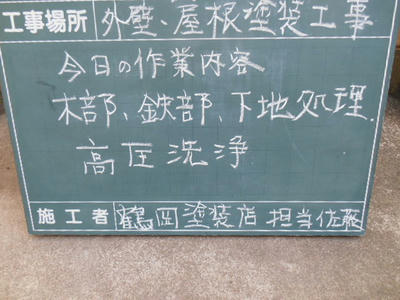 工事場所 外壁、屋根塗装工事
今日の作業内容
木部、鉄部、下地処理.
高圧洗浄
施工者 鶴岡塗装店 担当佐藤